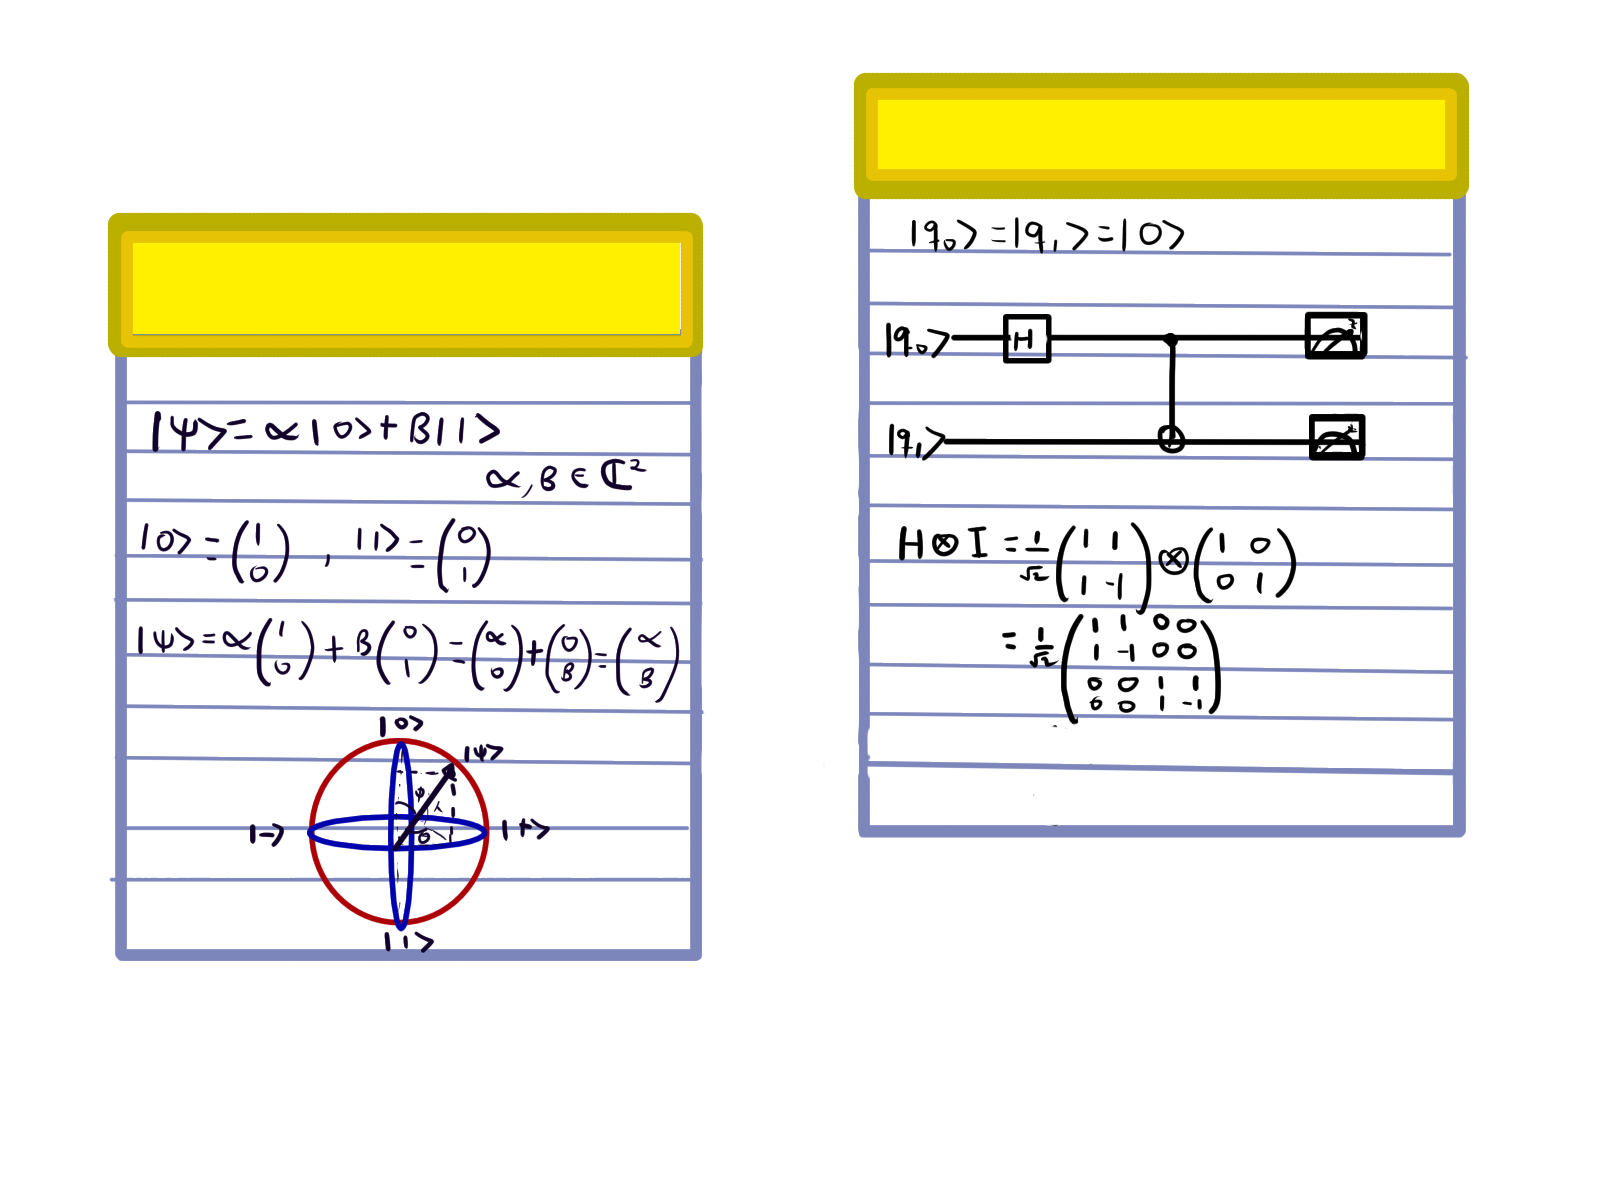 |ψ> = α|0> + B|1>
α, B ∈ ℂ²
|0> = (1 0) , |1> = (0 1)
|ψ> = α(1 0) + B(0 1) = (α 0) + (0 B) = (α B)
|0>
|ψ>
ψ
θ
|−>
|+>
|1>
|q₀> = |q₁> = |0>
|q₀> H z
|q₁> z
H ⊗ I = 1/√2 (1 1 1 -1) ⊗ (1 0 0 1)
= 1/√2 (1 1 0 0
1 -1 0 0
0 0 1 1
0 0 1 -1)